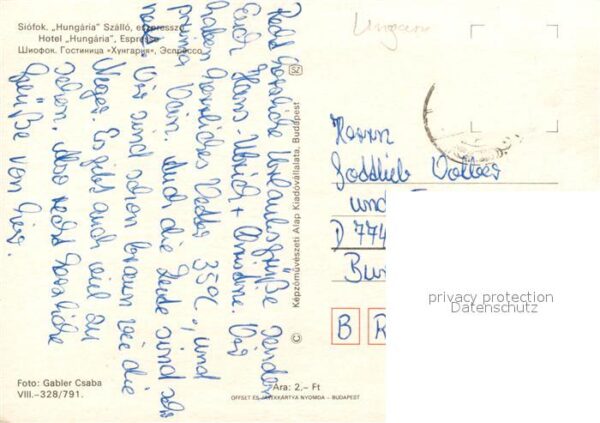 Siófok. „Hungária" Szálló, eszpresszó
Hotel „Hungária", Espresso
Шиофок. Гостиница «Хунгария», Эспрессо
Ungarn
Recht herzliche Urlaubsgrüße senden
Euch Hans-Ulrich + Christine. Wir
haben herrliches Wetter 35°C, und
prima Wein. Auch die Leute sind sehr
nett. Wir sind schon braun wie die
Neger. Es gibt auch viel zu
sehen. Also recht herzliche
Grüße von hier.
Képzőművészeti Alap Kiadóvállalata, Budapest
Herrn
Gottlieb
und
D 774
B
privacy protection
Datenschutz
B R
Foto: Gabler Csaba
VIII.–328/791.
Ára: 2,– Ft
OFFSET ÉS JÁTÉKKÁRTYA NYOMDA – BUDAPEST